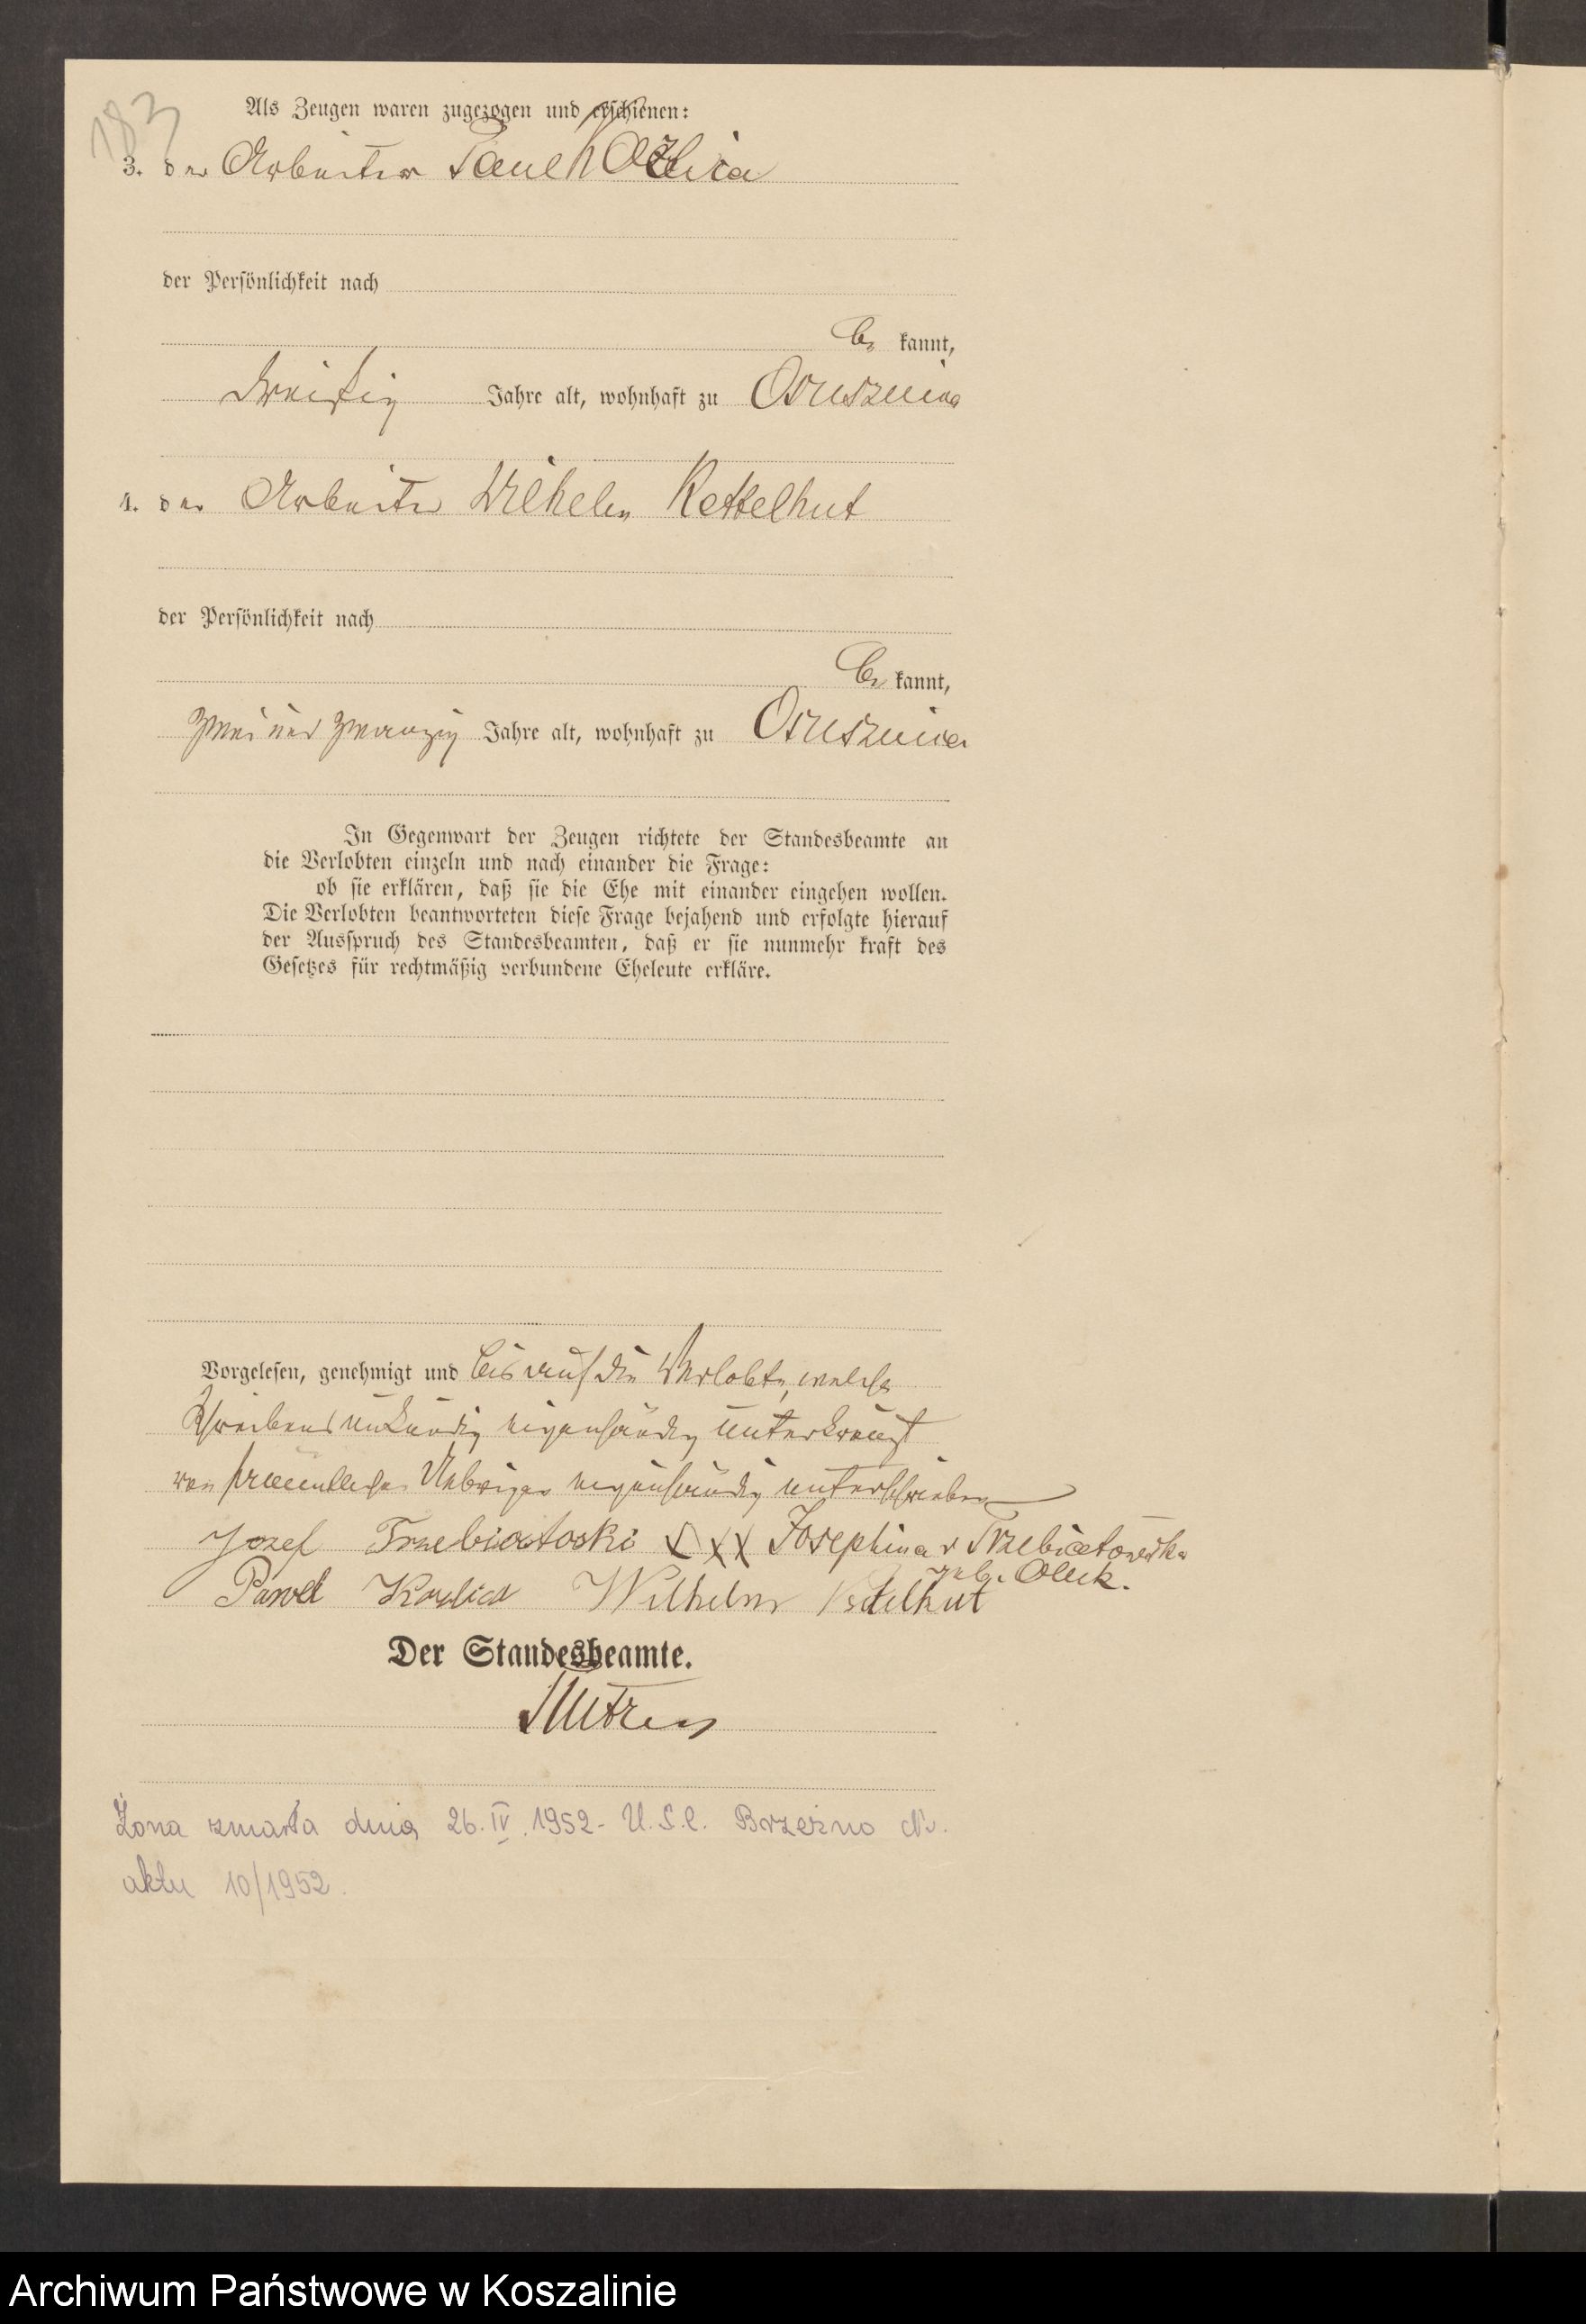 183
Als Zeugen waren zugezogen und erschienen:
3. der Arbeiter Paul Kozlica
der Persönlichkeit nach
be kannt,
dreißig Jahre alt, wohnhaft zu Ossusznica
4. der Arbeiter Wilhelm Kettelhut
der Persönlichkeit nach
be kannt,
zwei und zwanzig Jahre alt, wohnhaft zu Ossusznica
In Gegenwart der Zeugen richtete der Standesbeamte an
die Verlobten einzeln und nach einander die Frage:
ob sie erklären, daß sie die Ehe mit einander eingehen wollen.
Die Verlobten beantworteten diese Frage bejahend und erfolgte hierauf
der Ausspruch des Standesbeamten, daß er sie nunmehr kraft des
Gesetzes für rechtmäßig verbundene Eheleute erkläre.
Vorgelesen, genehmigt und bis auf die Verlobte, welche
Schreibens unkundig eigenhändig unterkreuzt
von sämmtlichen Uebrigen eigenhändig unterschrieben
Jozef Trzebiatoski XXX Josephina v Trzebiatowska
geb. Olik.
Paweł Kozlica Wilhelm Kettelhut
Der Standesbeamte.
Żona zmarła dnia 26.IV.1952 - U.S.C. Brzeźno Nr.
aktu 10/1952.
Archiwum Państwowe w Koszalinie